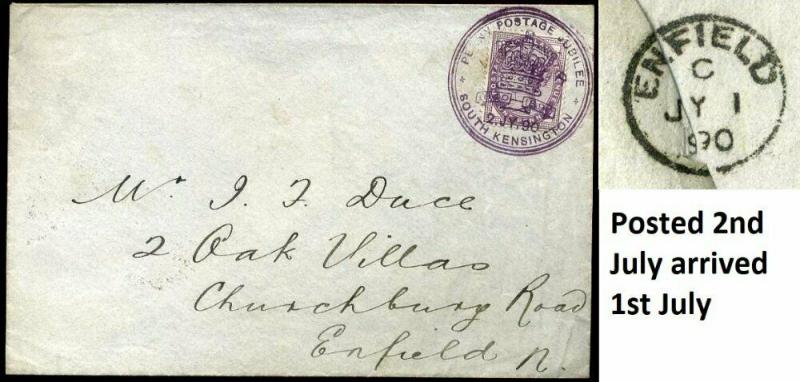 PENNY POSTAGE JUBILEE
2 JY 90
SOUTH KENSINGTON
Mr. J. F. Duce
2 Oak Villas
Churchbury Road
Enfield N.
ENFIELD
C
JY 1
90
Posted 2nd
July arrived
1st July